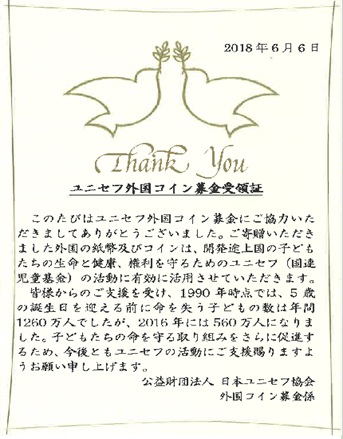 2018年6月6日
Thank You
ユニセフ外国コイン募金受領証
このたびはユニセフ外国コイン募金にご協力いた
だきましてありがとうございました。ご寄贈いただき
ました外国の紙幣及びコインは、開発途上国の子ども
たちの生命と健康、権利を守るためのユニセフ（国連
児童基金）の活動に有効に活用させていただきます。
皆様からのご支援を受け、1990年時点では、5歳
の誕生日を迎える前に命を失う子どもの数は年間
1260万人でしたが、2016年には560万人になりま
した。子どもたちの命を守る取り組みをさらに促進す
るため、今後ともユニセフの活動にご支援賜りますよ
うお願い申し上げます。
公益財団法人 日本ユニセフ協会
外国コイン募金係